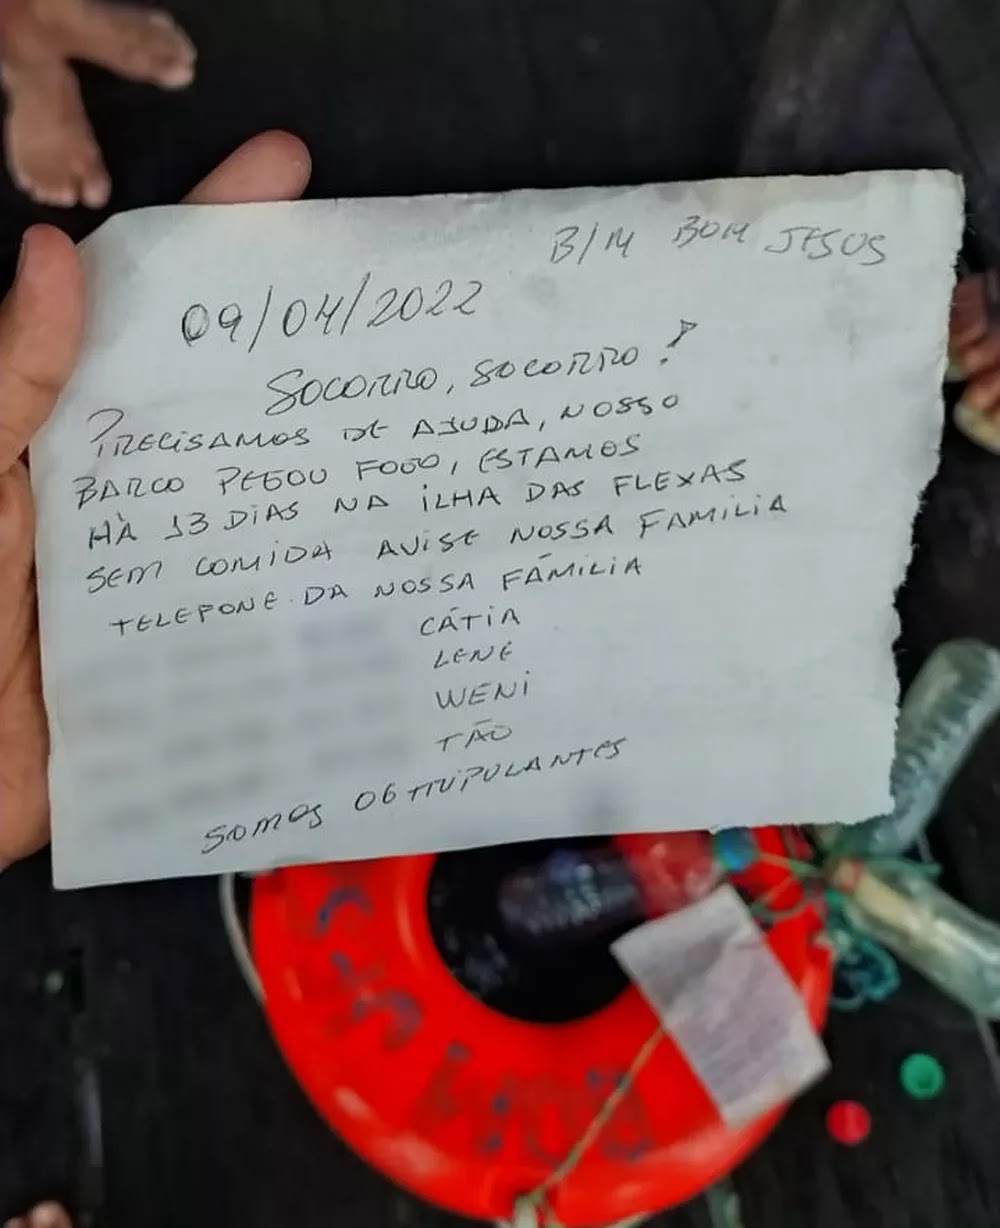 B/M BOM JESUS
09/04/2022
SOCORRO, SOCORRO!
PRECISAMOS DE AJUDA, NOSSO
BARCO PEGOU FOGO, ESTAMOS
HÀ 13 DIAS NA iLHA DAS FLEXAS
SEM COMIDA AVISE NOSSA FAMILIA
TELEFONE. DA NOSSA FÁMILIA
CÁTIA
LENE
WENI
TÃO
SOMOS 06 TRIPULANTES